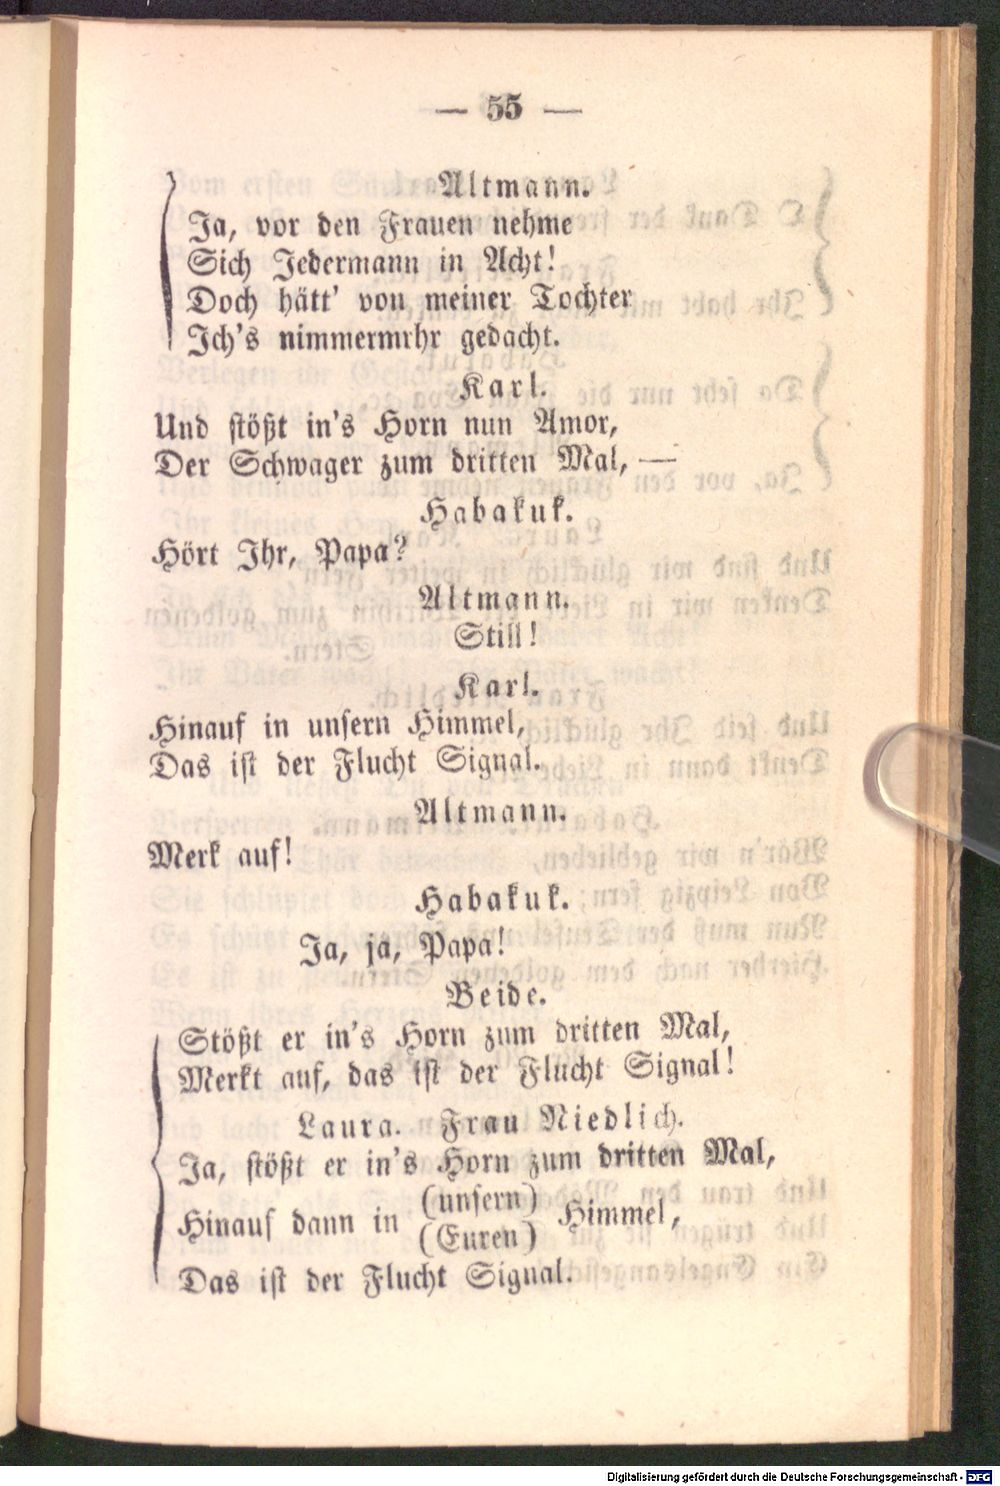 — 55 —
Altmann.
Ja, vor den Frauen nehme
Sich Jedermann in Acht!
Doch hätt' von meiner Tochter
Ich's nimmermrhr gedacht.
Karl.
Und stößt in's Horn nun Amor,
Der Schwager zum dritten Mal, —
Habakuk.
Hört Ihr, Papa?
Altmann.
Still!
Karl.
Hinauf in unsern Himmel,
Das ist der Flucht Signal.
Altmann.
Merk auf!
Habakuk.
Ja, ja, Papa!
Beide.
Stößt er in's Horn zum dritten Mal,
Merkt auf, das ist der Flucht Signal!
Laura. Frau Niedlich.
Ja, stößt er in's Horn zum dritten Mal,
Hinauf dann in (unsern) (Euren) Himmel,
Das ist der Flucht Signal.
Digitalisierung gefördert durch die Deutsche Forschungsgemeinschaft - DFG